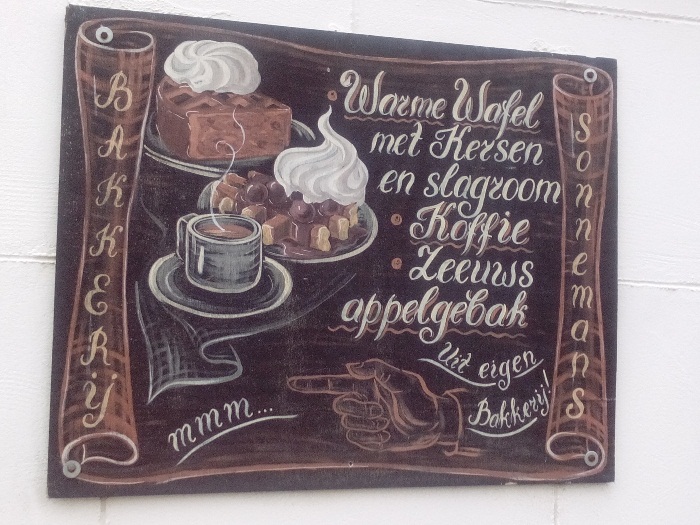 BAKKERIJ
Warme Wafel
met Kersen
en slagroom
Koffie
Zeeuws
appelgebak
Uit eigen
Bakkerij!
mmm...
Sonnemans